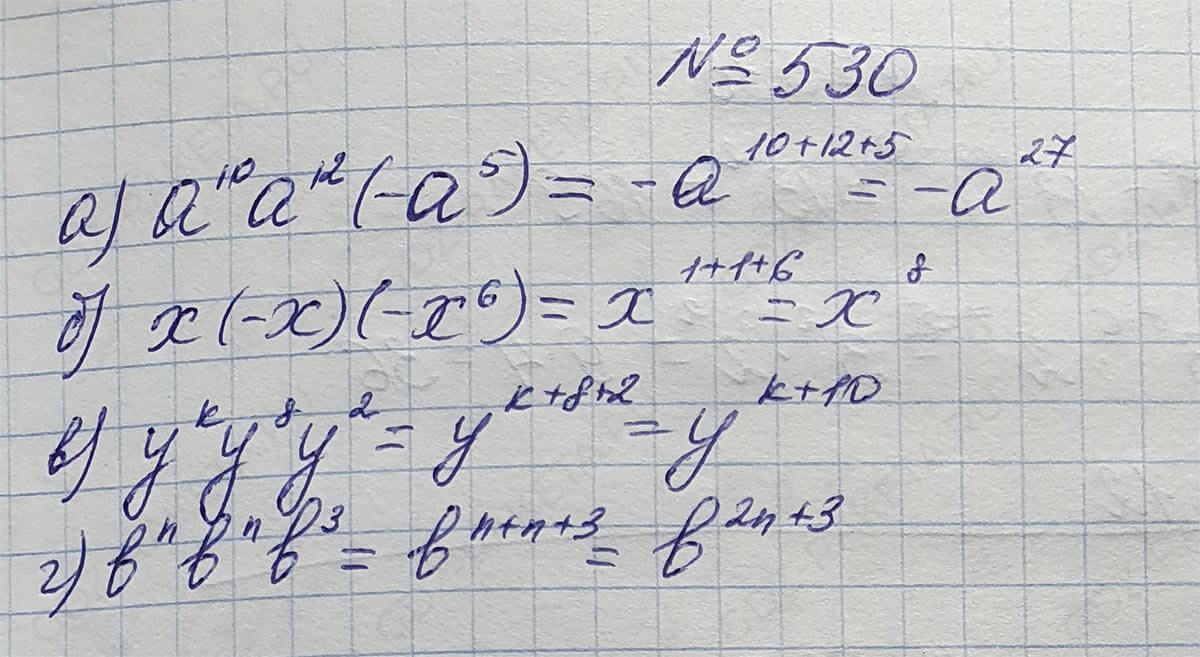 № 530
а) a¹⁰a¹²(-a⁵) = -a¹⁰⁺¹²⁺⁵ = -a²⁷
б) x(-x)(-x⁶) = x¹⁺¹⁺⁶ = x⁸
в) yᵏy⁸y² = yᵏ⁺⁸⁺² = yᵏ⁺¹⁰
г) bⁿbⁿb³ = bⁿ⁺ⁿ⁺³ = b²ⁿ⁺³